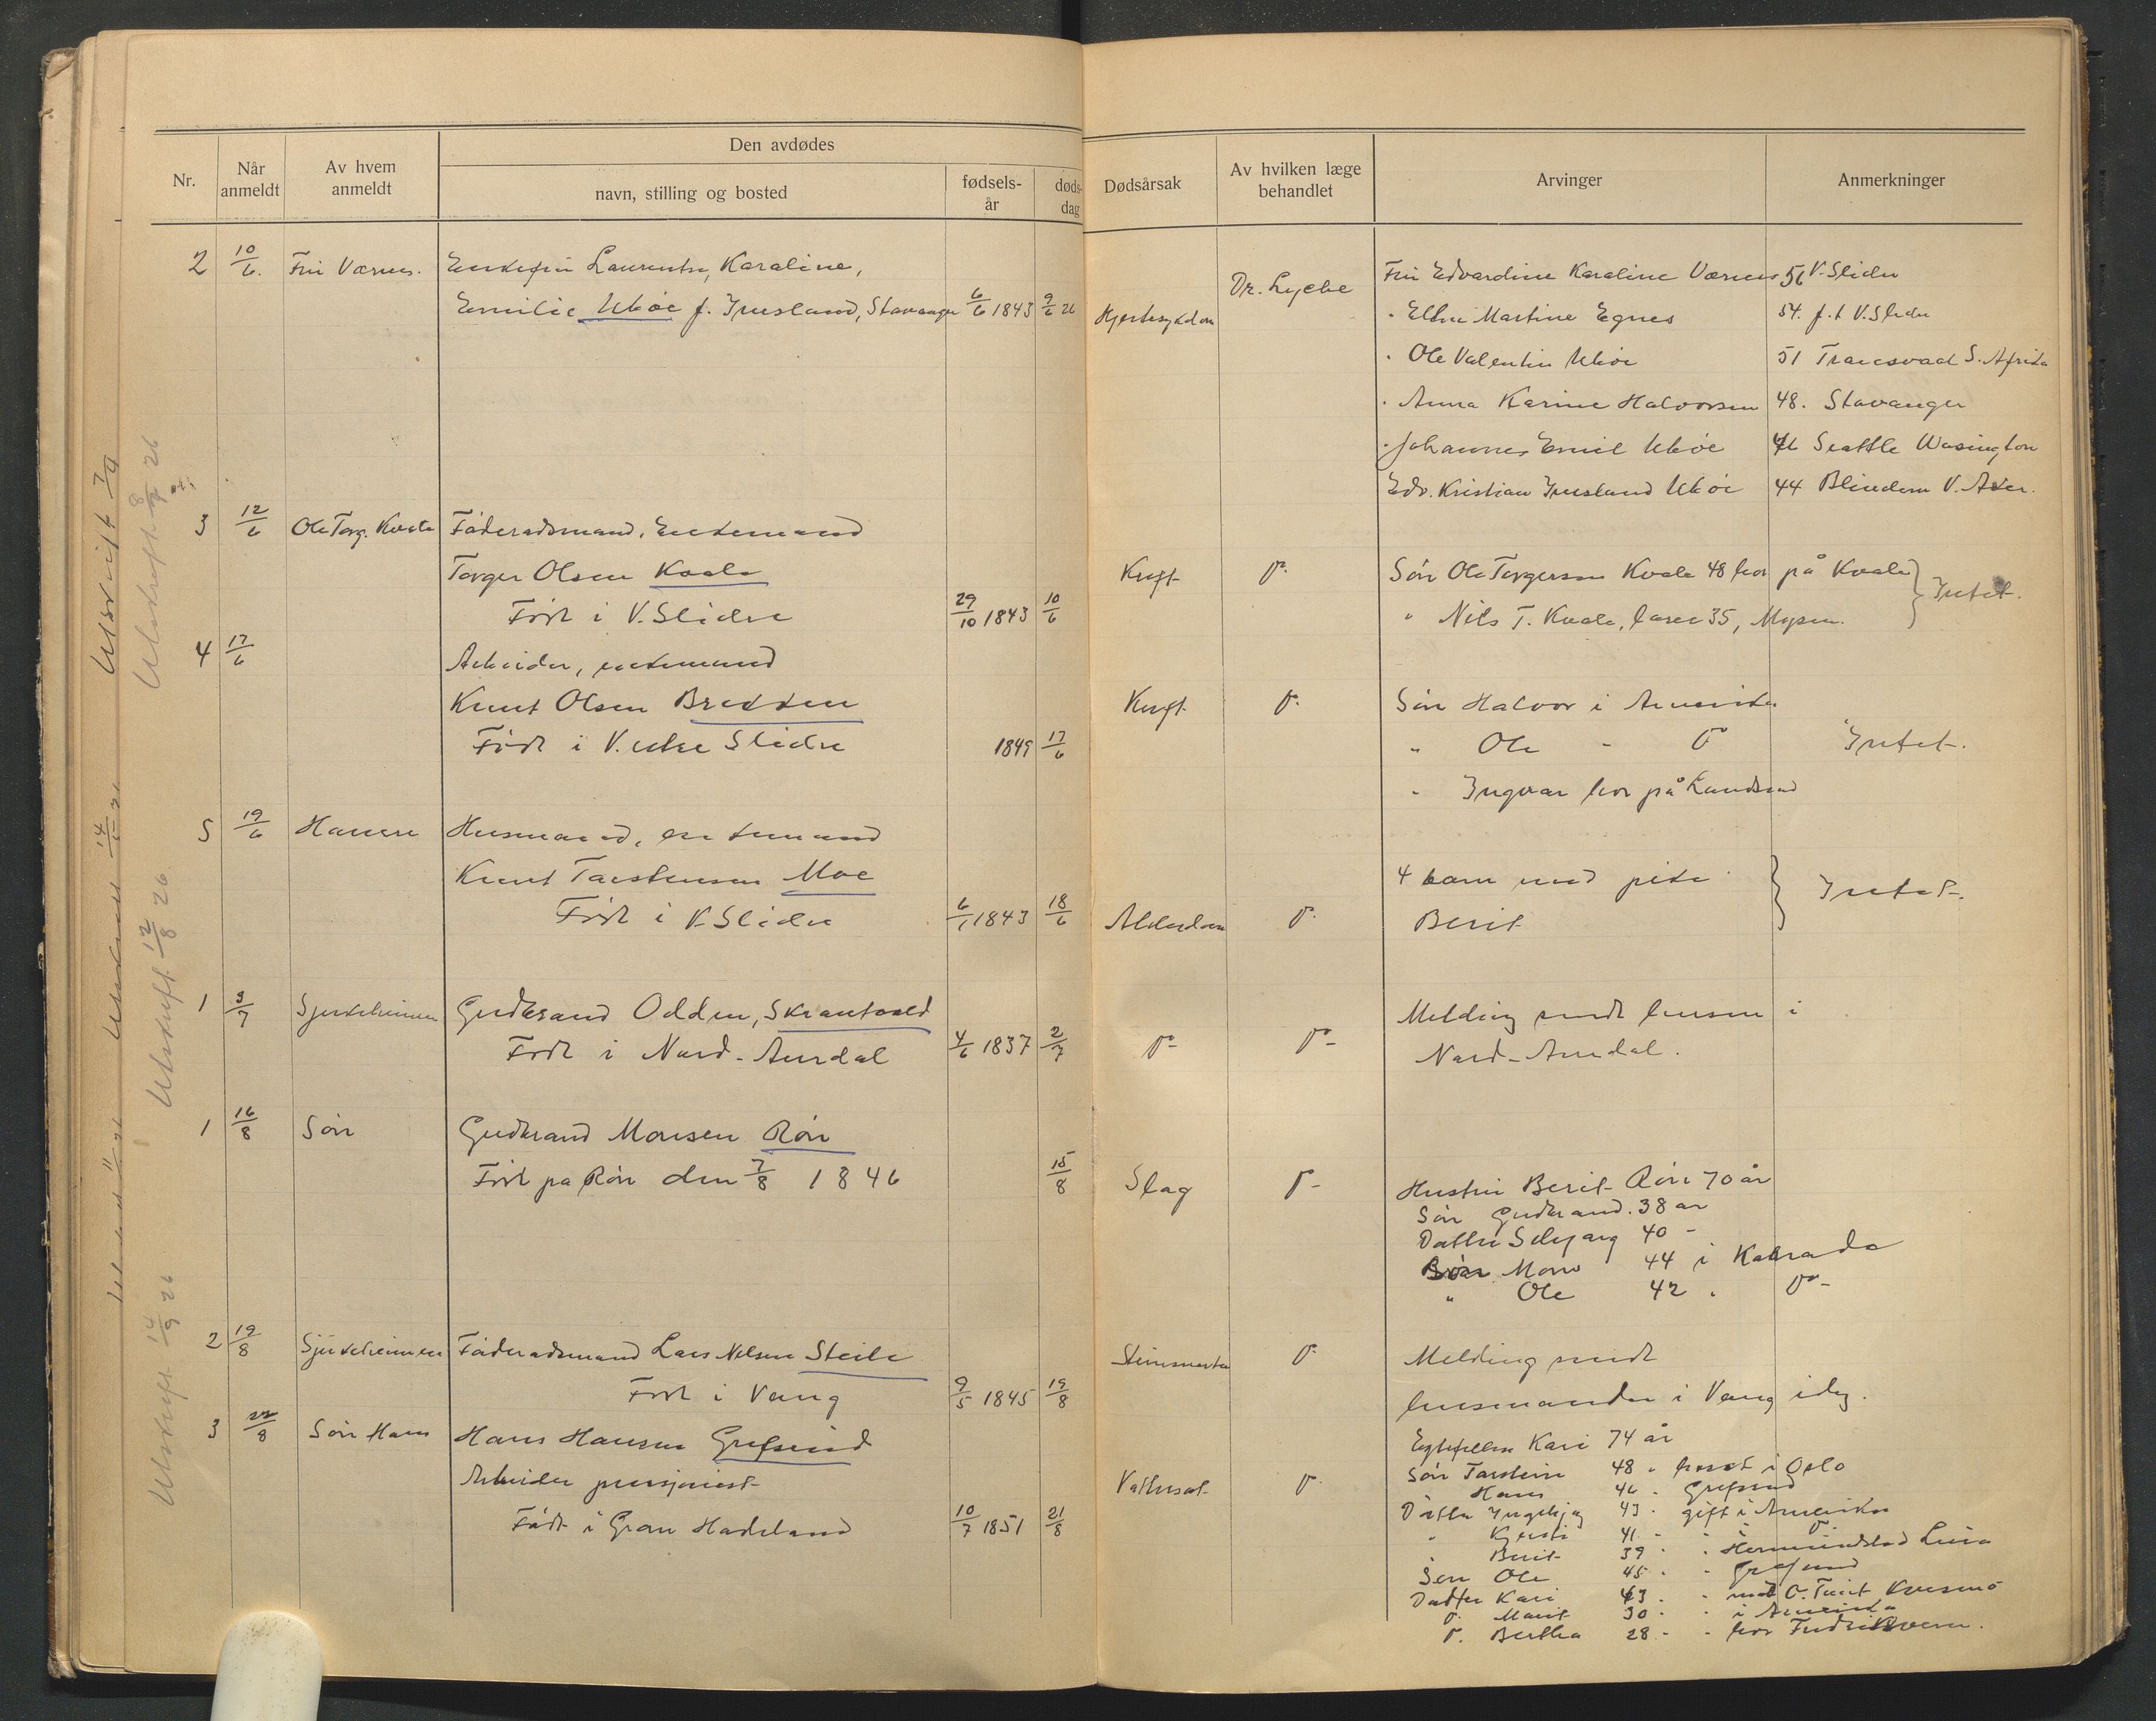 Den avdødes
Nr. Når anmeldt Av hvem anmeldt navn, stilling og bosted fødsels-år døds-dag Dødsårsak Av hvilken læge behandlet Arvinger Anmerkninger
2 10/6. Fru Værnes. Enkefru Laurentse, Karaline,
Emilie Ubøe f. Iruesland, Stavanger 6/6 1843 9/6 26 Hjertesykdom Dr. Lyche
Fru Edvardine Karaline Værnes 56 V. Slidre
" Martine Egnes 54. f.t V. Slidre
" Ole Valentin Ubøe 51 Transvaal S. Afrika
" Anna Karine Halvorsen 48. Stavanger
" Johannes Emil Ubøe 46 Seattle Wasington
Edv. Kristian Iruesland Ubøe 44 Blindern V. Aker.
3 12/6 Ole Torg. Kvale Føderådsmand, Enkemand
Torger Olsen Kvale Kreft do.
Født i V. Slidre 29/10 1843 10/6
Søn Ole Torgersen Kvale 48 bor på Kvale
" Nils T. Kvale, lærer 35, Mysen. } Intet.
4 17/6 Arbeider, enkemand
Knut Olsen Brekken Kreft do.
Født i V. Slidre 1849 17/6
Søn Halvor i Amerika
" Ole - do Intet.
" Ingvar bor på
5 19/6 Husmand, enkemand
Knut Torstensen Moe
Født i V. Slidre 6/1 1843 18/6 Alderdom do.
4 barn med pike
Berit } Intet.
1 3/7 Sjukeheimen Gudbrand Odden, Skrautvold
Født i Nord-Aurdal 4/6 1837 2/7 do- do-
Melding sendt lensm. i
Nord-Aurdal.
1 16/8 Søn Gudbrand Monsen Røn
Født på Røn den 7/8 1846 15/8 Slag do-
Hustru Berit Røn 70 år
Søn Gudbrand. 38 år
Datter 40 -
Søn Mons 44 i Kanada
" Ole 42 " do-
2 19/8 Sjukeheimen Føderådsmand Lars Nilsen Steile
Født i Vang 9/5 1845 19/8 do.
Melding sendt
lensmanden i Vang idag.
3 22/8 Søn Hans Hans Hansen Grefsrud
Arbeider pensjonist
Født i Gran Hadeland 10/7 1851 21/8 Vattersot do.
Egtefellen Kari 74 år
Søn Torstein 48 " bosat i Oslo
Hans 46 " Grefsrud
Datter Ingebjørg 43 " gift i Amerika
" Kjersti 41 - " do.
" Berit 39 "
Søn Ole 45 " Grefsrud
Datter Kari 43 "
do. Marit 30 " i Amerika
do. Bertha 28 - " hos
Utskrift 7/9
Utskrift 8/7 26
Utskrift 12/8 26
Utskrift 14/9 26